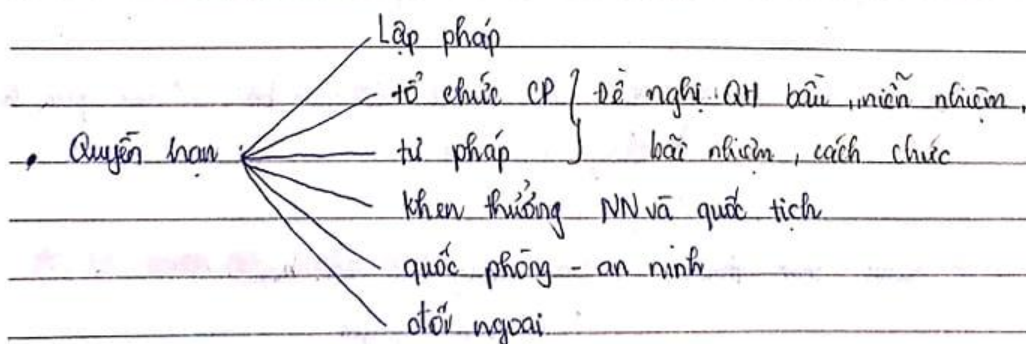 Lập pháp
tổ chức CP } Đề nghị QH bầu, miễn nhiệm,
• Quyền hạn : tư pháp } bãi nhiệm, cách chức
khen thưởng NN và quốc tịch
quốc phòng - an ninh
đối ngoại